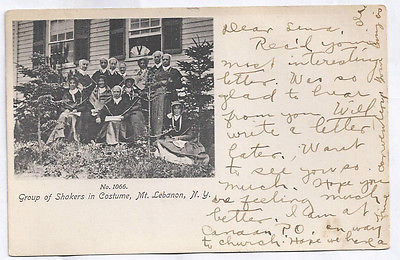 No. 1066.
Group of Shakers in Costume, Mt. Lebanon, N. Y.
Dear Lena,
Rec'd your
most interesting
letter. Was so
glad to hear
from you. Will
write a letter
later. Want
to see you so
much. Hope you
are feeling much
better. I am at
Canaan, P.O. on way
to church. Have we here a